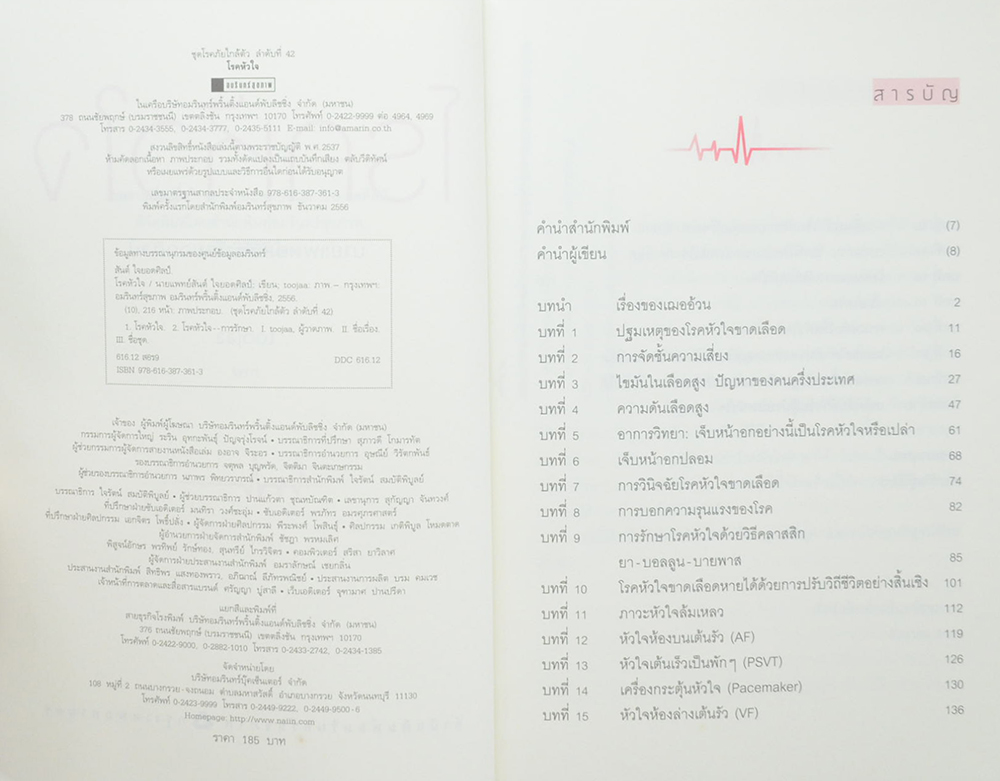 ชุดโรคภัยใกล้ตัว ลำดับที่ 42
โรคหัวใจ
อมรินทร์สุขภาพ
ในเครือบริษัทอมรินทร์พริ้นติ้งแอนด์พับลิชชิ่ง จำกัด (มหาชน)
378 ถนนชัยพฤกษ์ (บรมราชชนนี) เขตตลิ่งชัน กรุงเทพฯ 10170 โทรศัพท์ 0-2422-9999 ต่อ 4964, 4969
โทรสาร 0-2434-3555, 0-2434-3777, 0-2435-5111 E-mail: info@amarin.co.th
สงวนลิขสิทธิ์หนังสือเล่มนี้ตามพระราชบัญญัติ พ.ศ.2537
ห้ามคัดลอกเนื้อหา ภาพประกอบ รวมทั้งดัดแปลงเป็นแถบบันทึกเสียง ตลับวีดิทัศน์
หรือเผยแพร่ด้วยรูปแบบและวิธีการอื่นใดก่อนได้รับอนุญาต
เลขมาตรฐานสากลประจำหนังสือ 978-616-387-361-3
พิมพ์ครั้งแรกโดยสำนักพิมพ์อมรินทร์สุขภาพ ธันวาคม 2556
ข้อมูลทางบรรณานุกรมของศูนย์ข้อมูลอมรินทร์
สันต์ ใจยอดศิลป์.
โรคหัวใจ / นายแพทย์สันต์ ใจยอดศิลป์: เขียน, toojaa, ภาพ – กรุงเทพฯ:
อมรินทร์สุขภาพ อมรินทร์พริ้นติ้งแอนด์พับลิชชิ่ง, 2556.
(10), 216 หน้า ภาพประกอบ. (ชุดโรคภัยใกล้ตัว ลำดับที่ 42)
1. โรคหัวใจ. 2. โรคหัวใจ--การรักษา. I. toojaa, ผู้วาดภาพ. II. ชื่อเรื่อง.
III. ชื่อชุด.
616.12 ส6ร9 DDC 616.12
ISBN 978-616-387-361-3
เจ้าของ ผู้พิมพ์ผู้โฆษณา บริษัทอมรินทร์พริ้นติ้งแอนด์พับลิชชิ่ง จำกัด (มหาชน)
กรรมการผู้จัดการใหญ่ ระริน อุทกะพันธุ์ ปัญจรุ่งโรจน์ • บรรณาธิการที่ปรึกษา สุภาวดี โกมารทัต
ผู้ช่วยกรรมการผู้จัดการสายงานหนังสือเล่ม องอาจ จิระอร • บรรณาธิการอำนวยการ อุษณีย์ วิรัตกพันธ์
รองบรรณาธิการอำนวยการ จตุพล บุญพรัด, จิตติมา จินตะเกษกรรม
ผู้ช่วยรองบรรณาธิการอำนวยการ นภาพร พิทยวรากรณ์ • บรรณาธิการสำนักพิมพ์ ใจรัตน์ สมบัติพิบูลย์
บรรณาธิการ ใจรัตน์ สมบัติพิบูลย์ • ผู้ช่วยบรรณาธิการ ปานแก้วตา ชุณหบัณฑิต • เลขานุการ สุกัญญา จันทวงศ์
ที่ปรึกษาฝ่ายซับเอดิเตอร์ มนทิรา วงศ์ชะอุ่ม • ซับเอดิเตอร์ พรภัทร อมรศุภรศาสตร์
ที่ปรึกษาฝ่ายศิลปกรรม เอกจิตร โพธิ์ปลั่ง • ผู้จัดการฝ่ายศิลปกรรม พีระพงศ์ โพสินธุ์ • ศิลปกรรม เกศิพิบูล โหมดตาด
ผู้อำนวยการฝ่ายจัดการสำนักพิมพ์ ชัชฎา พรหมเลิศ
พิสูจน์อักษร พรทิพย์ รักษ์ทอง, สุนทรีย์ ไกรวิจิตร • คอมพิวเตอร์ สริสา ยาวิลาศ
ผู้จัดการฝ่ายประสานงานสำนักพิมพ์ อมราลักษณ์ เชยกลิ่น
ประสานงานสำนักพิมพ์ สิทธิพร แสงทองพราว, อภิฌาณ์ ลีภัทรพณิชย์ • ประสานงานการผลิต บรม คมเวช
เจ้าหน้าที่การตลาดและสื่อสารแบรนด์ ศรัญญา ปูสาลี • เว็บเอดิเตอร์ จุฑามาศ ปานปรีดา
แยกสีและพิมพ์ที่
สายธุรกิจโรงพิมพ์ บริษัทอมรินทร์พริ้นติ้งแอนด์พับลิชชิ่ง จำกัด (มหาชน)
376 ถนนชัยพฤกษ์ (บรมราชชนนี) เขตตลิ่งชัน กรุงเทพฯ 10170
โทรศัพท์ 0-2422-9000, 0-2882-1010 โทรสาร 0-2433-2742, 0-2434-1385
จัดจำหน่ายโดย
บริษัทอมรินทร์บุ๊คเซ็นเตอร์ จำกัด
108 หมู่ที่ 2 ถนนบางกรวย-จงถนอม ตำบลมหาสวัสดิ์ อำเภอบางกรวย จังหวัดนนทบุรี 11130
โทรศัพท์ 0-2423-9999 โทรสาร 0-2449-9222, 0-2449-9500-6
Homepage: http://www.naiin.com
ราคา 185 บาท
สารบัญ
คำนำสำนักพิมพ์ (7)
คำนำผู้เขียน (8)
บทนำ เรื่องของเฌออ้วน 2
บทที่ 1 ปฐมเหตุของโรคหัวใจขาดเลือด 11
บทที่ 2 การจัดชั้นความเสี่ยง 16
บทที่ 3 ไขมันในเลือดสูง ปัญหาของคนครึ่งประเทศ 27
บทที่ 4 ความดันเลือดสูง 47
บทที่ 5 อาการวิทยา: เจ็บหน้าอกอย่างนี้เป็นโรคหัวใจหรือเปล่า 61
บทที่ 6 เจ็บหน้าอกปลอม 68
บทที่ 7 การวินิจฉัยโรคหัวใจขาดเลือด 74
บทที่ 8 การบอกความรุนแรงของโรค 82
บทที่ 9 การรักษาโรคหัวใจด้วยวิธีคลาสสิก
ยา-บอลลูน-บายพาส 85
บทที่ 10 โรคหัวใจขาดเลือดหายได้ด้วยการปรับวิถีชีวิตอย่างสิ้นเชิง 101
บทที่ 11 ภาวะหัวใจล้มเหลว 112
บทที่ 12 หัวใจห้องบนเต้นรัว (AF) 119
บทที่ 13 หัวใจเต้นเร็วเป็นพักๆ (PSVT) 126
บทที่ 14 เครื่องกระตุ้นหัวใจ (Pacemaker) 130
บทที่ 15 หัวใจห้องล่างเต้นรัว (VF) 136